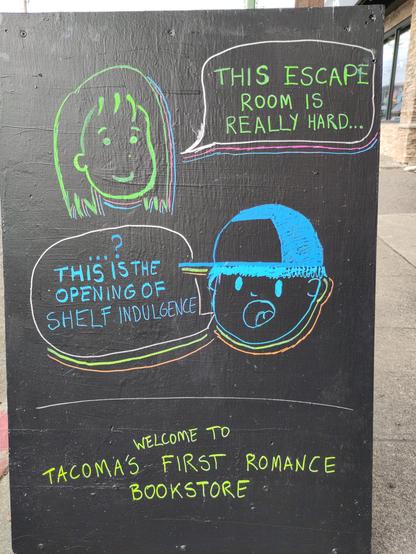 THIS ESCAPE
ROOM IS
REALLY HARD...
...?
THIS IS THE
OPENING OF
SHELF INDULGENCE
WELCOME TO
TACOMA'S FIRST ROMANCE
BOOKSTORE